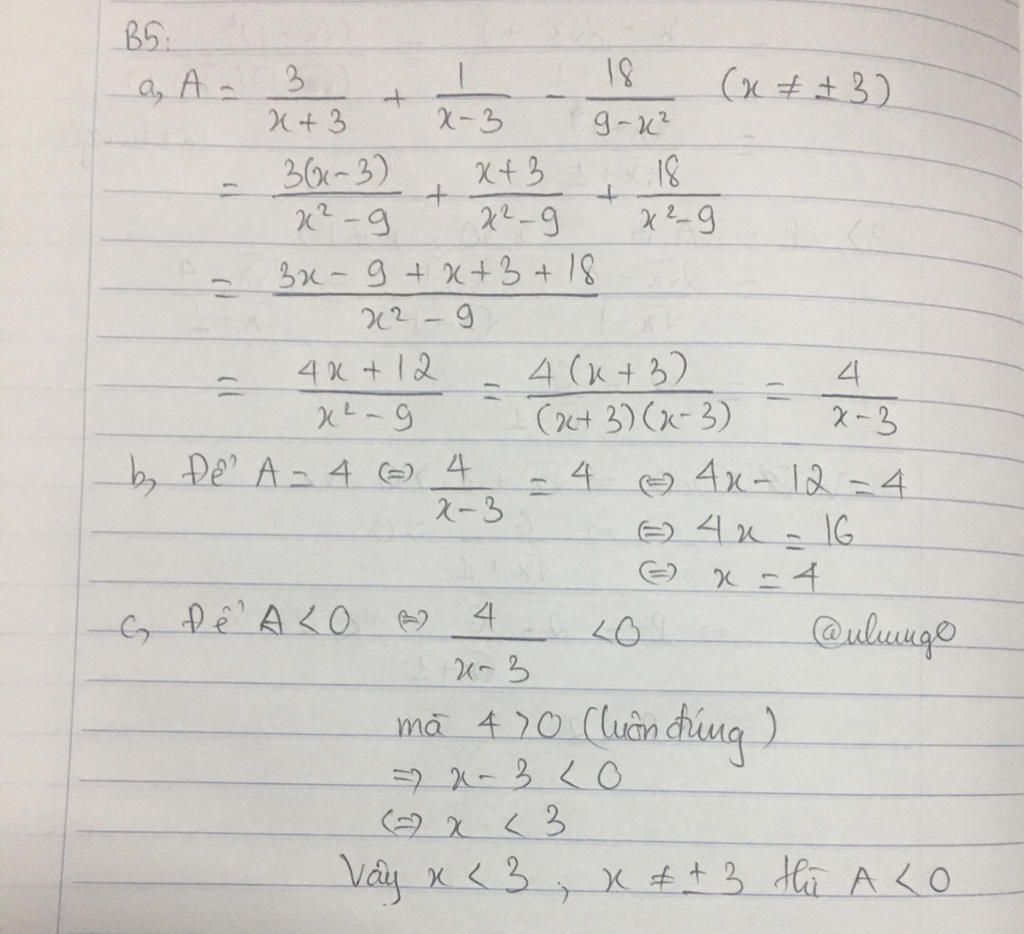 B5:
a, A = 3/(x+3) + 1/(x-3) - 18/(9-x²) (x ≠ ±3)
= 3(x-3)/(x²-9) + (x+3)/(x²-9) + 18/(x²-9)
= (3x - 9 + x + 3 + 18)/(x² - 9)
= (4x + 12)/(x² - 9) = 4(x+3)/((x+3)(x-3)) = 4/(x-3)
b, Để A = 4 ⇔ 4/(x-3) = 4 ⇔ 4x - 12 = 4
⇔ 4x = 16
⇔ x = 4
c, Để A < 0 ⇔ 4/(x-3) < 0
mà 4 > 0 (luôn đúng)
⇒ x - 3 < 0
⇔ x < 3
Vây x < 3, x ≠ ±3 thì A < 0